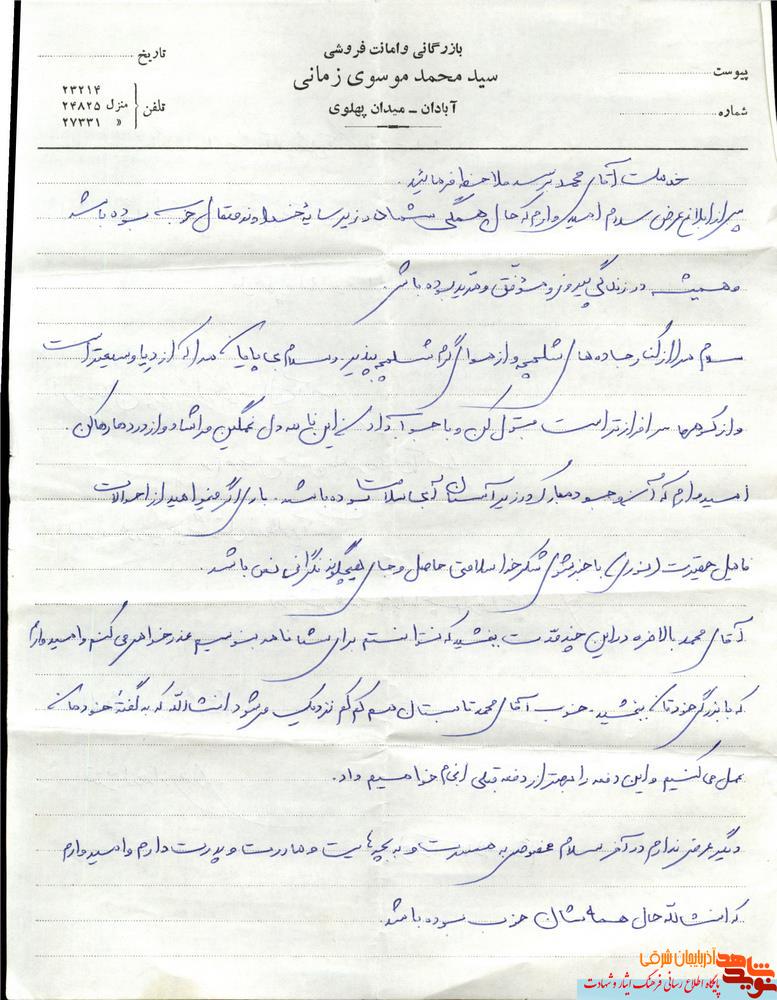 بازرگانی و امانت فروشی
سید محمد موسوی زمانی
آبادان ــ میدان پهلوی
تاریخ
تلفن
۲۳۲۱۴
منزل ۲۴۸۲۵
» ۲۷۳۳۱
پیوست
شماره
خدمت آقای محمد برسد ملاحظه فرمائید.
پس از ابلاغ عرض سلام امیدوارم که حال همگی شماها در زیر سایهٔ خداوند متعال خوب بوده باشد
و همیشه در زندگی پیروز و موفق و مؤید بوده باشی.
سلام مرا از کنار جاده های شلمچه و از هوای گرم شلمچه بپذیر. و سلام بی پایان مرا که از دریا وسیعتر است
و از کوهها سرافرازتر است قبول کن و با جواب دادن این نامه دل غمگین مرا شاد و از دردها رها کن.
امیدوارم که آن وجود مبارک در زیر آسمان آنجا سلامت بوده باشد. باری اگر میخواهید از احوالات
فامیل حقیرت (نوری) باخبر شوی شکر خدا سلامتی حاصل و جای هیچگونه نگرانی نمی باشد.
آقای محمد بالاخره در این چند مدت ببخشید که نتوانستم برای شما نامه بنویسم عذرخواهی می کنم و امیدوارم
که با بزرگی خودتان ببخشید. خوب آقای محمد تابستان هم کم کم نزدیک می شود انشاالله که به گفتهٔ خودمان
عمل می کنیم و این دفعه را بهتر از دفعه قبلی انجام خواهیم داد.
دیگر عرضی ندارم در آخر سلام مخصوص به همسرت و به بچه هایت و مادرت و پدرت دارم و امیدوارم
که انشاالله حال همه شان خوب بوده باشد.
نوید شاهد آذربایجان شرقی
پایگاه اطلاع رسانی فرهنگ ایثار و شهادت